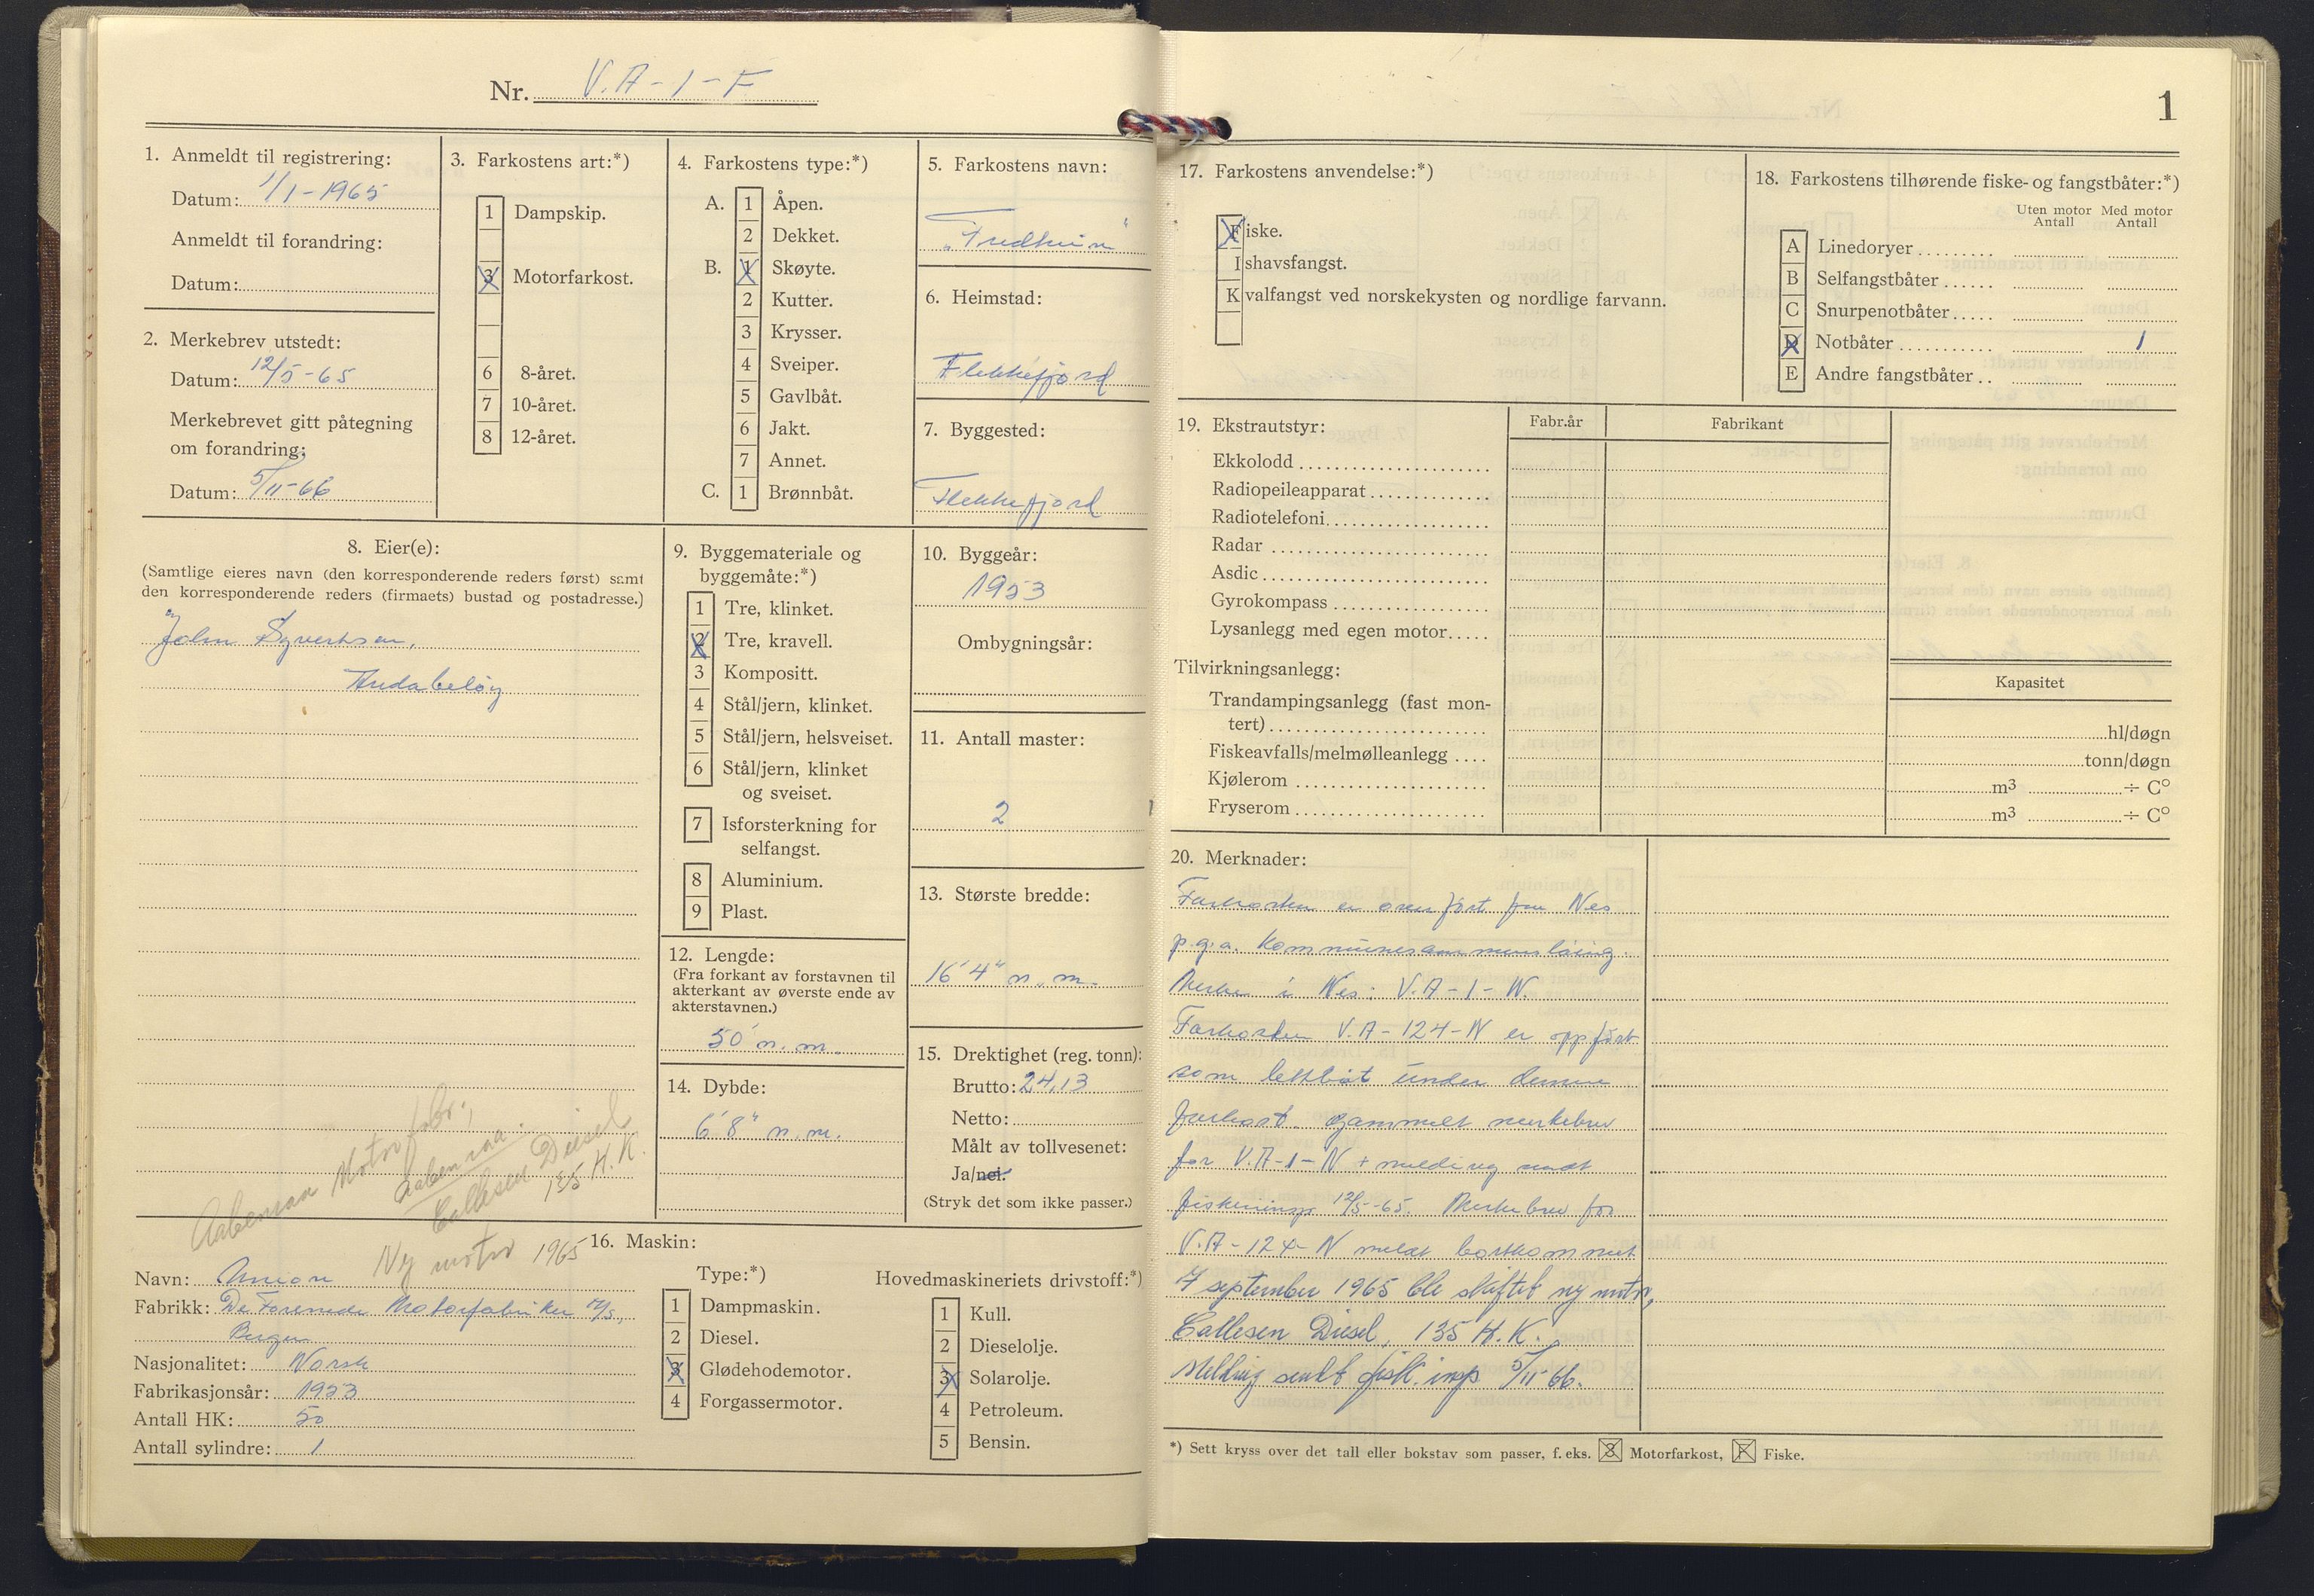 Nr. V.A-1-F
1
1. Anmeldt til registrering:
Datum: 1/1-1965
Anmeldt til forandring:
Datum:
2. Merkebrev utstedt:
Datum: 12/5-65
Merkebrevet gitt påtegning
om forandring:
Datum: 5/11-66
3. Farkostens art:*)
1 Dampskip.
3 Motorfarkost.
6 8-året.
7 10-året.
8 12-året.
4. Farkostens type:*)
A. 1 Åpen.
2 Dekket.
B. 1 Skøyte.
2 Kutter.
3 Krysser.
4 Sveiper.
5 Gavlbåt.
6 Jakt.
7 Annet.
C. 1 Brønnbåt.
5. Farkostens navn:
"Fredheim"
6. Heimstad:
Flekkefjord
7. Byggested:
Flekkefjord
8. Eier(e):
(Samtlige eieres navn (den korresponderende reders først) samt
den korresponderende reders (firmaets) bustad og postadresse.)
John Syvertsen,
Andabeløy
9. Byggemateriale og
byggemåte:*)
1 Tre, klinket.
2 Tre, kravell.
3 Kompositt.
4 Stål/jern, klinket.
5 Stål/jern, helsveiset.
6 Stål/jern, klinket
og sveiset.
7 Isforsterkning for
selfangst.
8 Aluminium.
9 Plast.
10. Byggeår:
1953
Ombygningsår:
11. Antall master:
2
12. Lengde:
(Fra forkant av forstavnen til
akterkant av øverste ende av
akterstavnen.)
50' n.m.
13. Største bredde:
16'4" n.m.
14. Dybde:
6'8" n.m.
15. Drektighet (reg. tonn):
Brutto: 24,13
Netto:
Målt av tollvesenet:
Ja/nei.
(Stryk det som ikke passer.)
Aabenraa Motorfabr.,
Aabenraa.
Callesen Diesel
135 H.K.
Ny motor 1965
16. Maskin:
Navn: Union
Fabrikk: De Forenede Motorfabriker A/S,
Bergen
Nasjonalitet: Norsk
Fabrikasjonsår: 1953
Antall HK: 50
Antall sylindre: 1
Type:*)
1 Dampmaskin.
2 Diesel.
3 Glødehodemotor.
4 Forgassermotor.
Hovedmaskineriets drivstoff:*)
1 Kull.
2 Dieselolje.
3 Solarolje.
4 Petroleum.
5 Bensin.
17. Farkostens anvendelse:*)
Fiske.
Ishavsfangst.
Kvalfangst ved norskekysten og nordlige farvann.
18. Farkostens tilhørende fiske- og fangstbåter:*)
Uten motor Med motor
Antall Antall
A Linedoryer
B Selfangstbåter
C Snurpenotbåter
D Notbåter 1
E Andre fangstbåter
19. Ekstrautstyr:
Fabr.år
Fabrikant
Ekkolodd
Radiopeileapparat
Radiotelefoni
Radar
Asdic
Gyrokompass
Lysanlegg med egen motor
Tilvirkningsanlegg:
Kapasitet
Trandampingsanlegg (fast mon-
tert) hl/døgn
Fiskeavfalls/melmølleanlegg tonn/døgn
Kjølerom m³ ÷ C°
Fryserom m³ ÷ C°
20. Merknader:
Farkosten er overført fra Nes
p.g.a. kommunesammenslåing.
Merke i Nes: V.A-1-N.
Farkosten V.A-124-N er oppført
som lettbåt under denne
farkost. Gammelt merkebrev
for V.A-1-N + melding sendt
fiskeriinsp 12/5-65. Merkebrev for
V.A-124-N meldt bortkommet
I september 1965 ble skiftet ny motor,
Callesen Diesel, 135 H.K.
Melding sendt fisk.insp 5/11-66.
*) Sett kryss over det tall eller bokstav som passer, f. eks. 3 Motorfarkost, F Fiske.